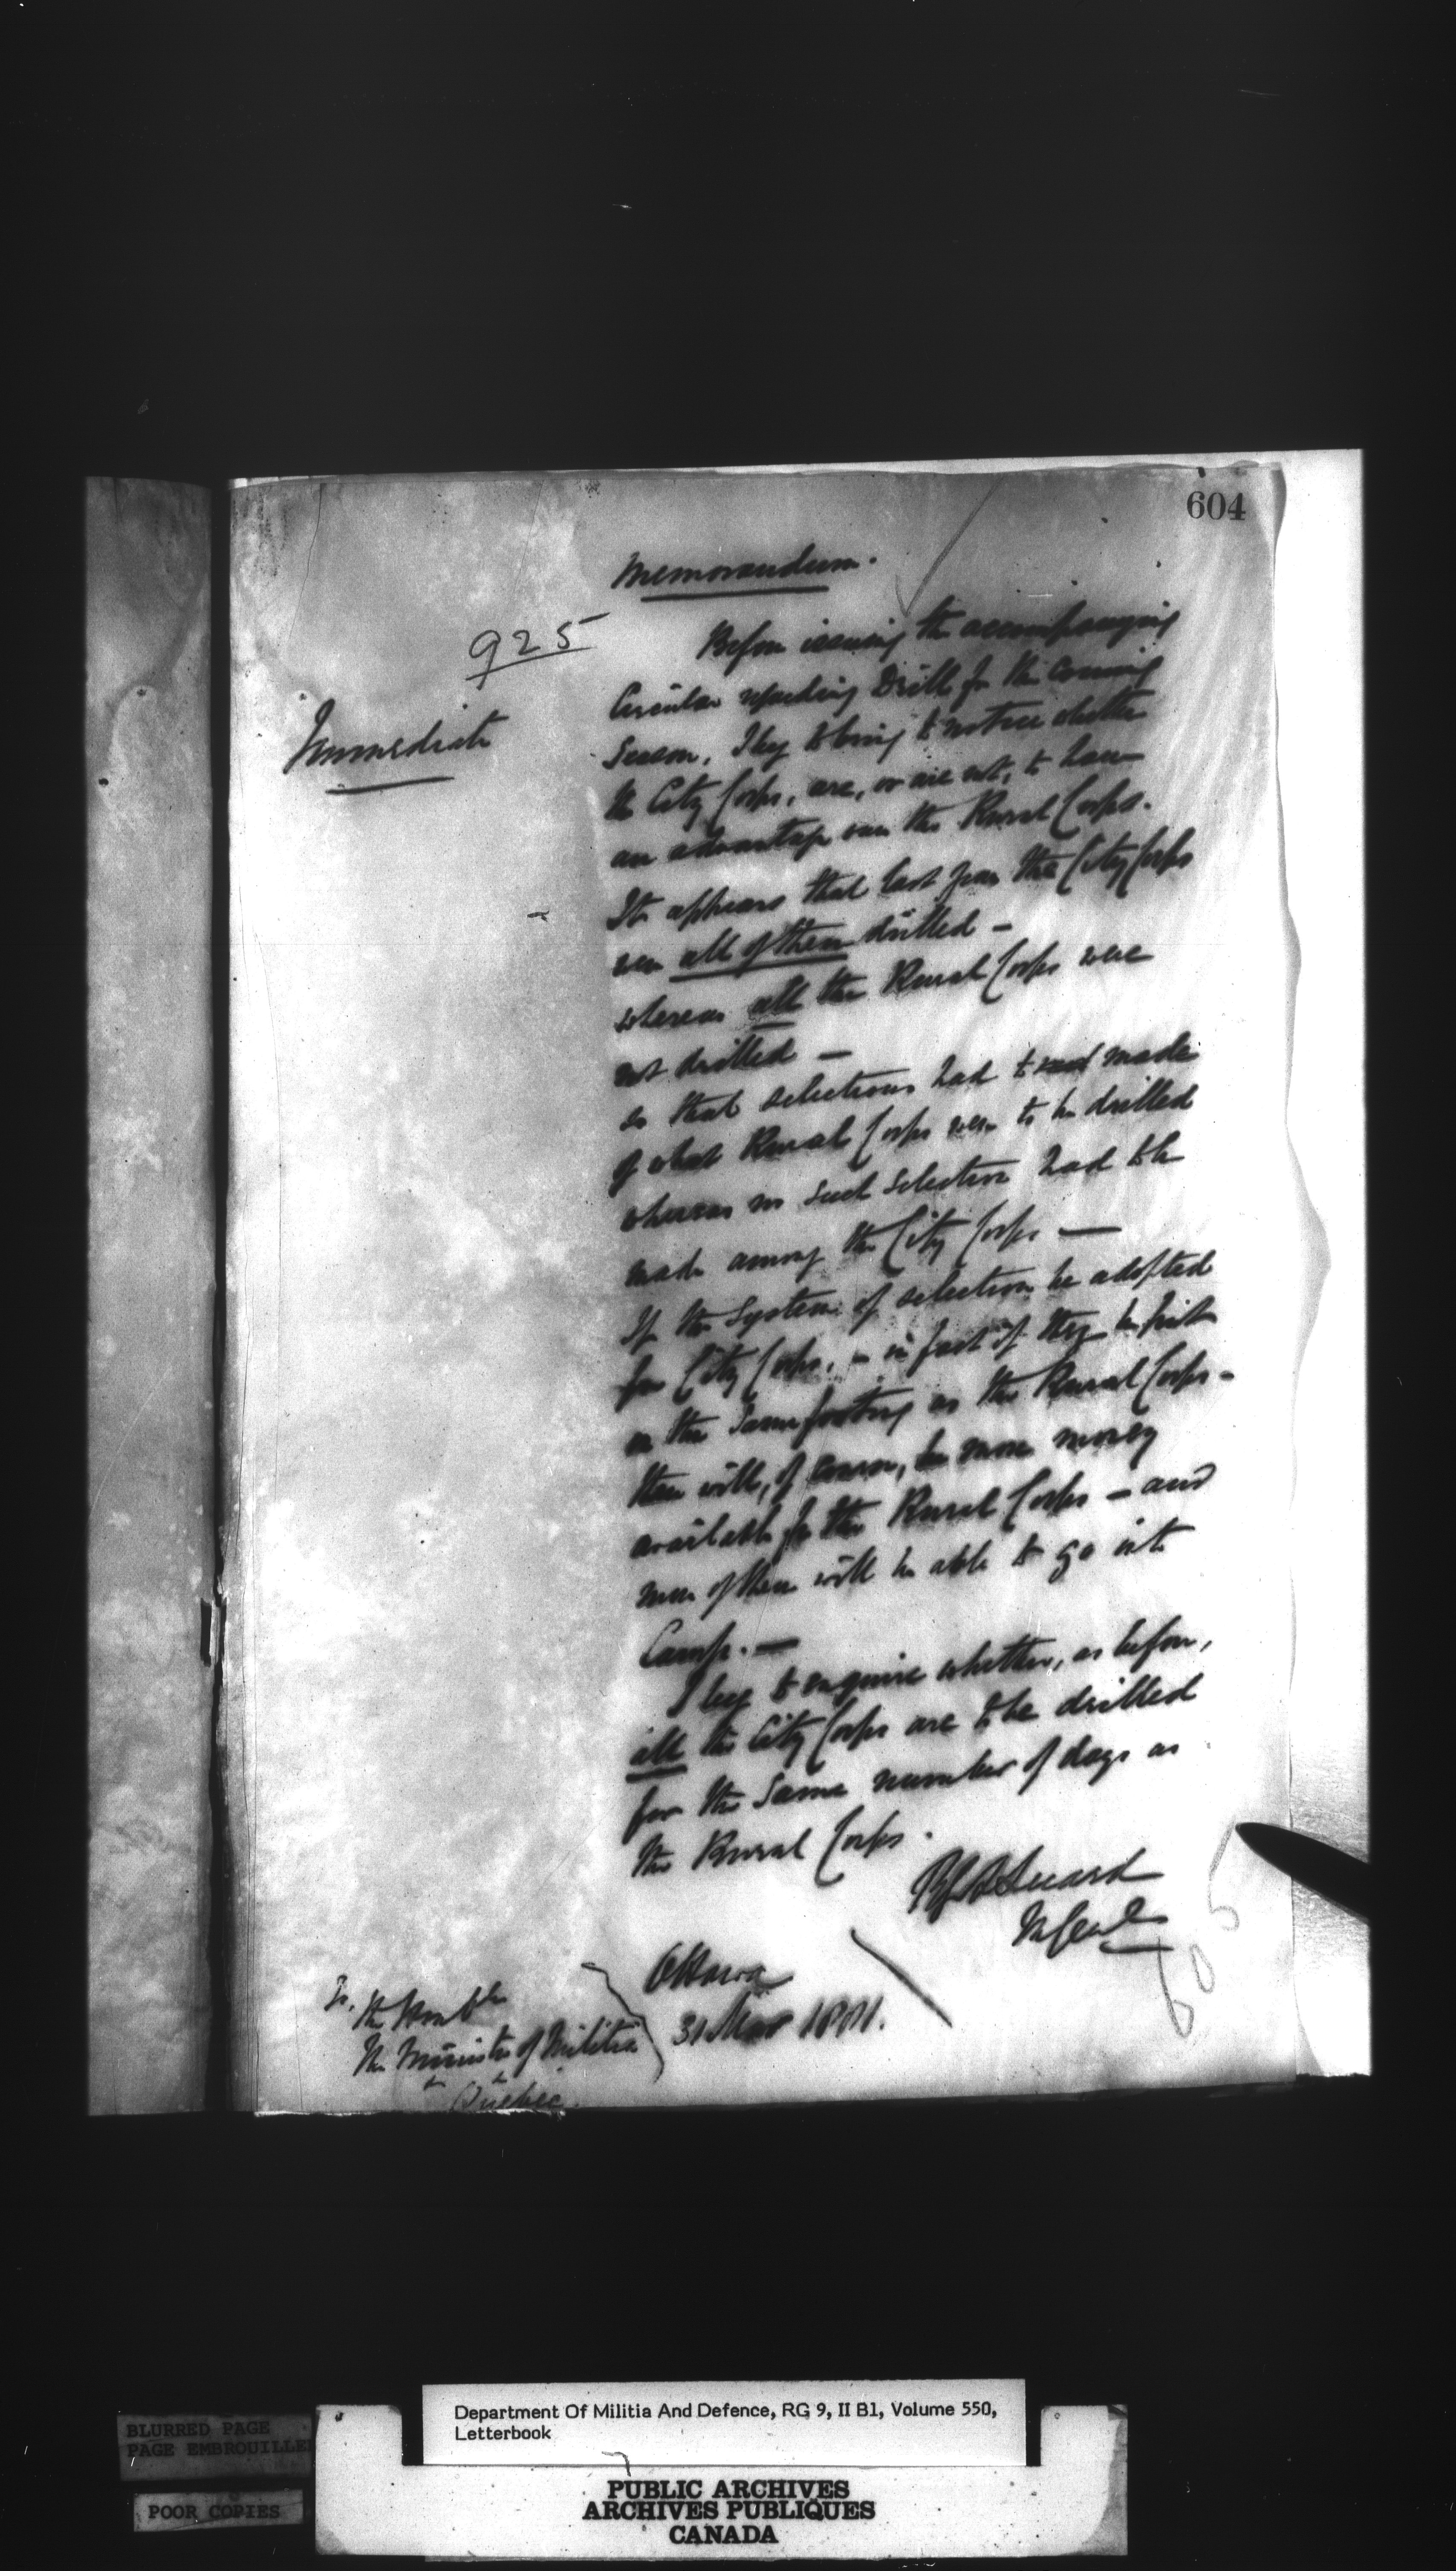 604
Memorandum.
925
Immediate
Before issuing the accompanying
Circular regarding Drill for the Coming
Season, I beg to bring to notice whether
the City Corps, are, or are not, to have
an advantage over the Rural Corps.
It appears that last year the City Corps
were all of them drilled —
whereas all the Rural Corps were
not drilled —
so that selections had to made
of what Rural Corps were to be drilled
whereas no such selection had to be
made among the City Corps —
If the System of selection be adopted
for City Corps, in fact if they be put
on the same footing as the Rural Corps -
there will, of course, be more money
available for the Rural Corps - and
more of them will be able to go into
Camp. —
I beg to enquire whether, as before,
all the City Corps are to be drilled
for the same number of days as
the Rural Corps.
Luard
M Genl
Ottawa
31 Mar 1881.
To,
The Honble
The Minister of Militia
Quebec.
605
Department Of Militia And Defence, RG 9, II B1, Volume 550,
Letterbook
BLURRED PAGE
PAGE EMBROUILLE
POOR COPIES
PUBLIC ARCHIVES
ARCHIVES PUBLIQUES
CANADA